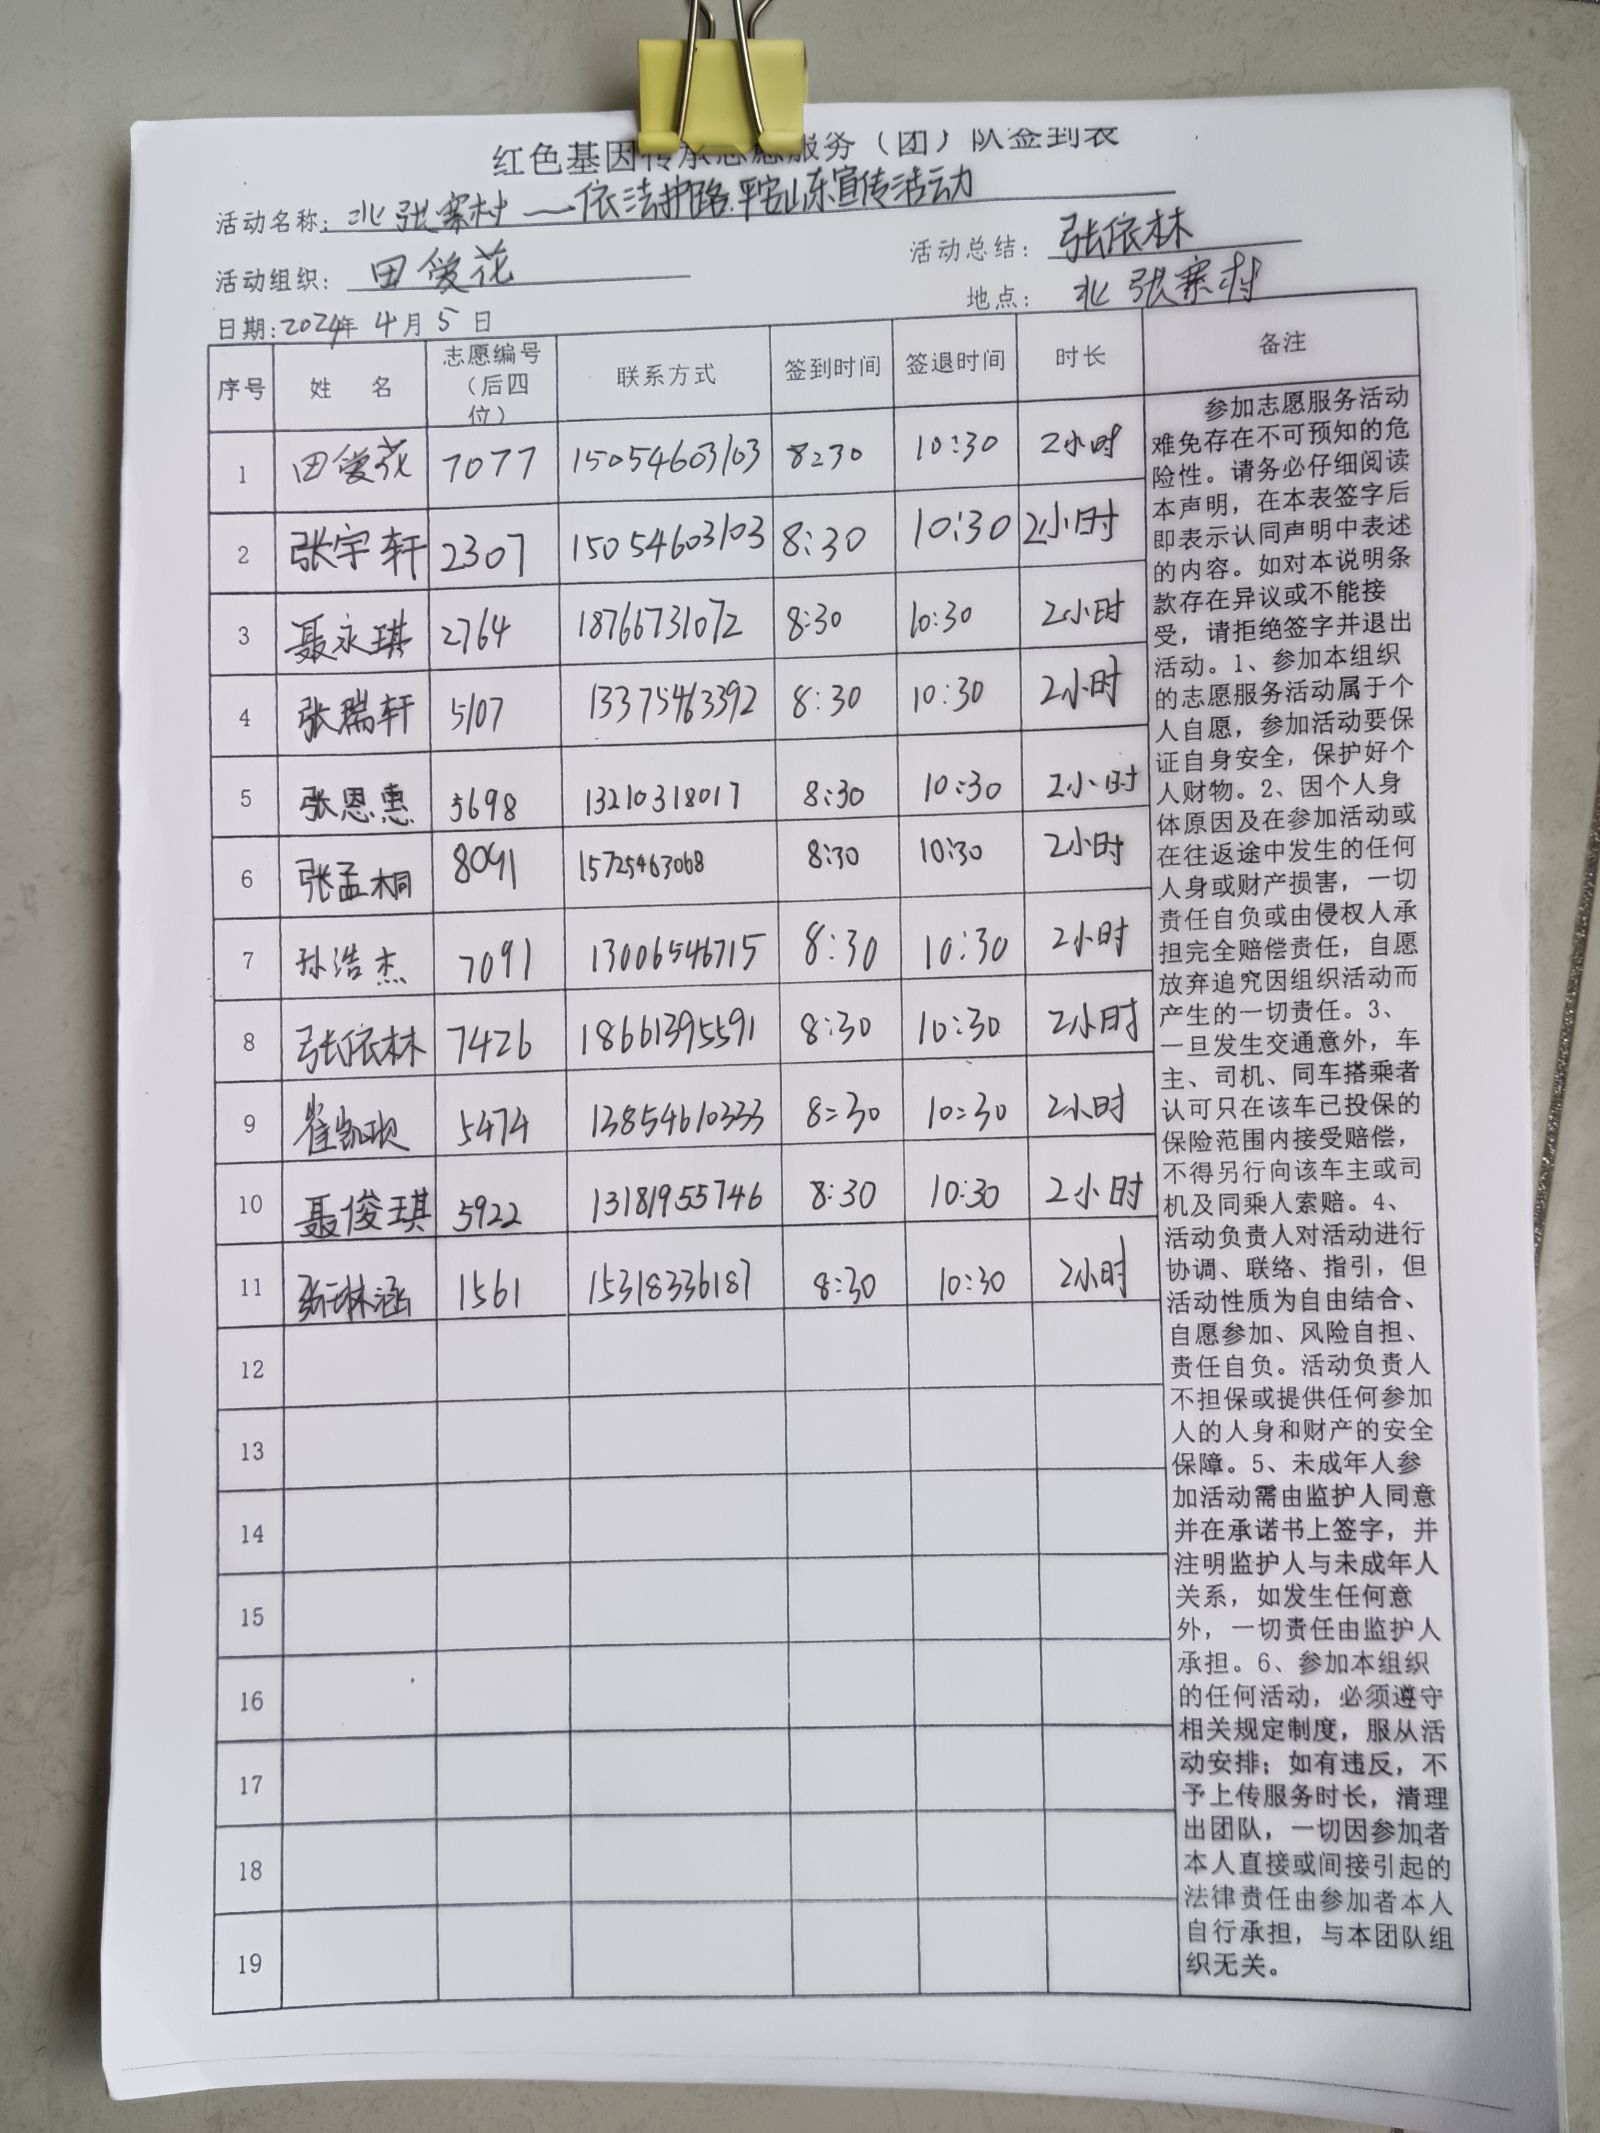 红色基因传承志愿服务（团）队签到表
活动名称：北张寨村——依法护路.平安山东宣传活动
活动组织：田爱花 活动总结：张依林
地点：北张寨村
日期：2024年4月5日
序号 姓 名 志愿编号（后四位） 联系方式 签到时间 签退时间 时长 备注
1 田爱花 7077 15054603103 8:30 10:30 2小时
2 张宇轩 2307 15054603103 8:30 10:30 2小时
3 聂永琪 2764 18766731072 8:30 10:30 2小时
4 张瑞轩 5107 13375463392 8:30 10:30 2小时
5 张恩惠 5698 13210318017 8:30 10:30 2小时
6 张孟桐 8091 15725463068 8:30 10:30 2小时
7 孙浩杰 7091 13006546715 8:30 10:30 2小时
8 张依林 7426 18661395591 8:30 10:30 2小时
9 5474 13854610333 8:30 10:30 2小时
10 聂俊琪 5922 13181955746 8:30 10:30 2小时
11 张琳涵 1561 15318336187 8:30 10:30 2小时
12
13
14
15
16
17
18
19
参加志愿服务活动
难免存在不可预知的危
险性。请务必仔细阅读
本声明，在本表签字后
即表示认同声明中表述
的内容。如对本说明条
款存在异议或不能接
受，请拒绝签字并退出
活动。1、参加本组织
的志愿服务活动属于个
人自愿，参加活动要保
证自身安全，保护好个
人财物。2、因个人身
体原因及在参加活动或
在往返途中发生的任何
人身或财产损害，一切
责任自负或由侵权人承
担完全赔偿责任，自愿
放弃追究因组织活动而
产生的一切责任。3、
一旦发生交通意外，车
主、司机、同车搭乘者
认可只在该车已投保的
保险范围内接受赔偿，
不得另行向该车主或司
机及同乘人索赔。4、
活动负责人对活动进行
协调、联络、指引，但
活动性质为自由结合、
自愿参加、风险自担、
责任自负。活动负责人
不担保或提供任何参加
人的人身和财产的安全
保障。5、未成年人参
加活动需由监护人同意
并在承诺书上签字，并
注明监护人与未成年人
关系，如发生任何意
外，一切责任由监护人
承担。6、参加本组织
的任何活动，必须遵守
相关规定制度，服从活
动安排；如有违反，不
予上传服务时长，清理
出团队，一切因参加者
本人直接或间接引起的
法律责任由参加者本人
自行承担，与本团队组
织无关。